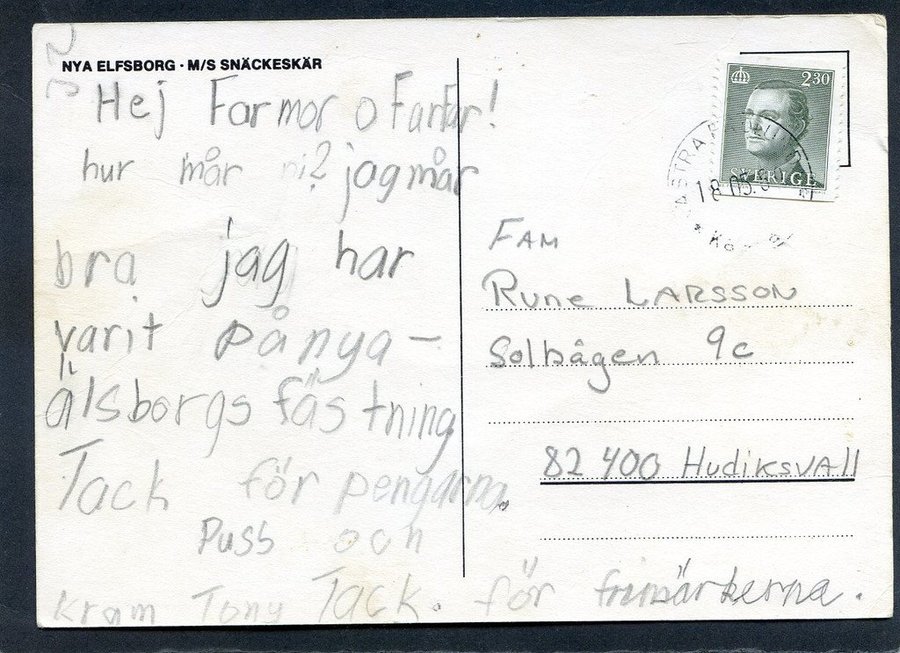 NYA ELFSBORG · M/S SNÄCKESKÄR
Hej Farmor o Farfar!
hur mår ni? jag mår
bra jag har
varit på nya-
älsborgs fästning
Tack för pengarna.
Puss och
kram Tony Tack. för frimärkerna.
2.30
SVERIGE
18.05.
FAM
RUNE LARSSON
Solbågen 9c
82 400 HUDIKSVALL